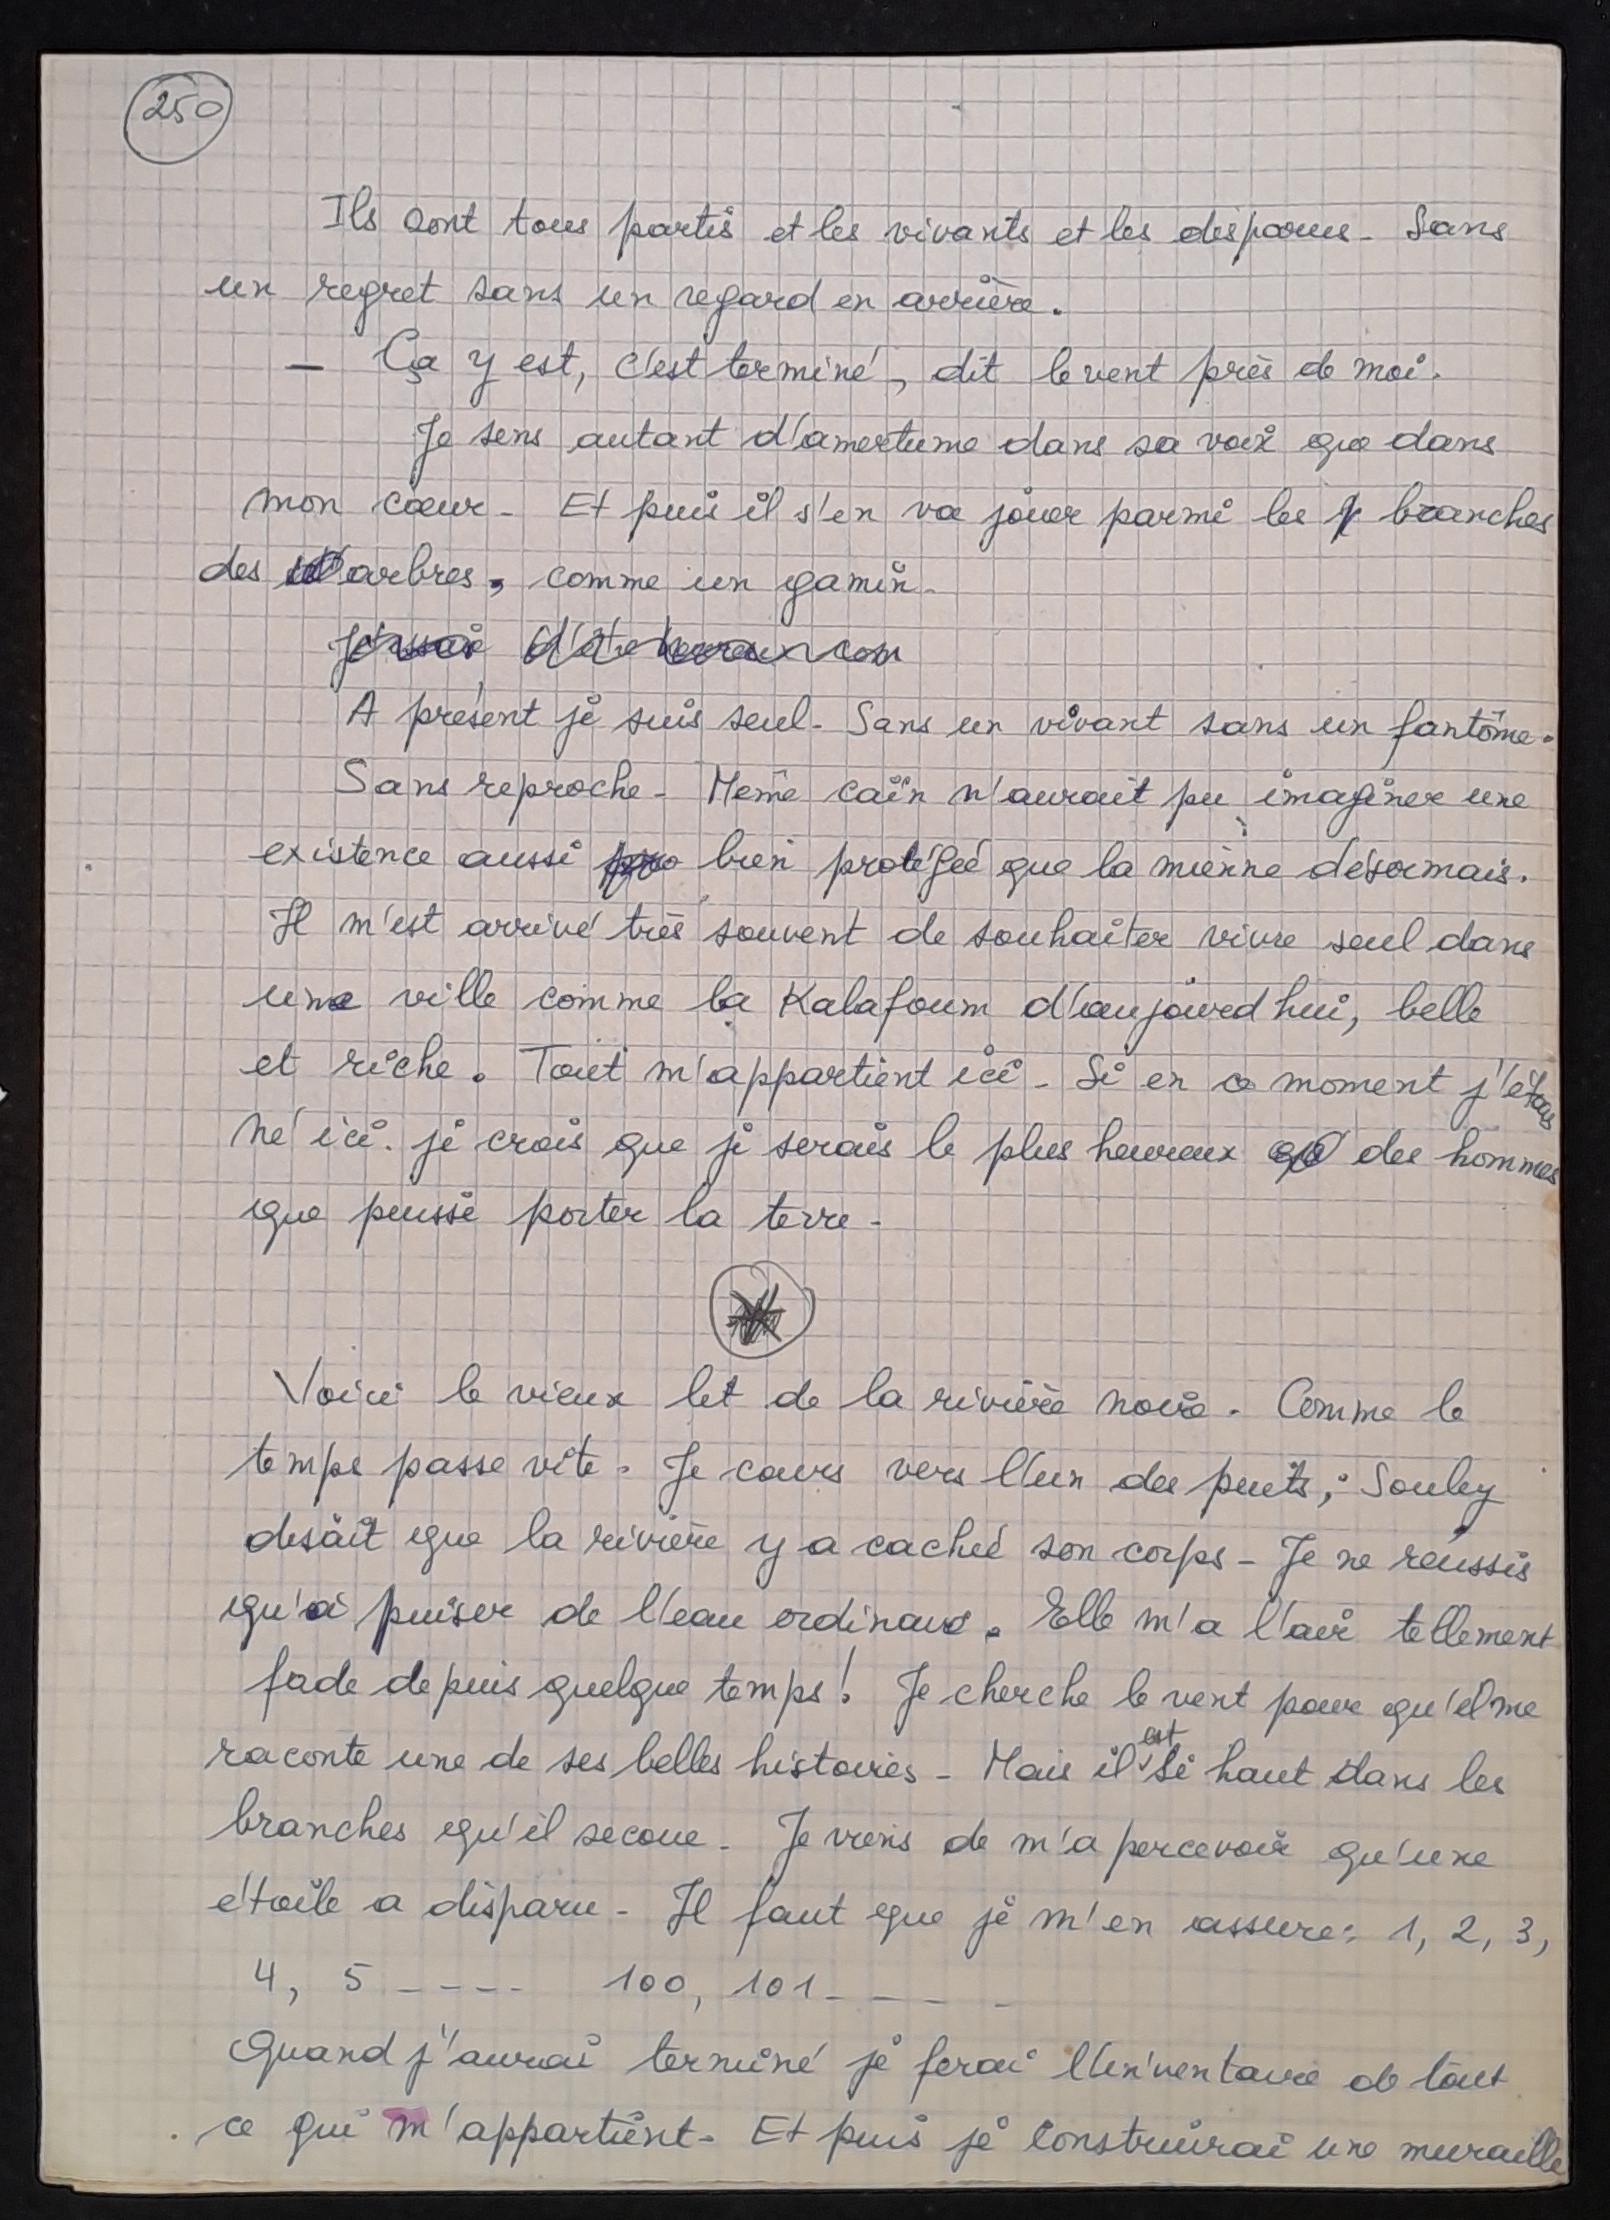 250
Ils sont tous partis et les vivants et les disparus. Sans
un regret sans un regard en arrière.
— Ça y est, c'est terminé, dit le vent près de moi.
Je sens autant d'amertume dans sa voix que dans
mon cœur. Et puis il s'en va jouer parmi les branches
des arbres, comme un gamin.
A présent je suis seul. Sans un vivant sans un fantôme.
Sans reproche. Même caïn n'aurait pu imaginer une
existence aussi bien protégée que la mienne désormais.
Il m'est arrivé très souvent de souhaiter vivre seul dans
une ville comme la Kalafoum d'aujourd'hui, belle
et riche. Tout m'appartient ici. Si en ce moment j'étais
né ici. je crois que je serais le plus heureux des hommes
que puisse porter la terre.
*
Voici le vieux lit de la rivière noire. Comme le
temps passe vite. Je cours vers l'un des puits; Souley
disait que la rivière y a caché son corps. Je ne réussis
qu'à puiser de l'eau ordinaire. Elle m'a l'air tellement
fade depuis quelque temps! Je cherche le vent pour qu'il me
raconte une de ses belles histoires. Mais il est si haut dans les
branches qu'il secoue. Je viens de m'apercevoir qu'une
étoile a disparu. Il faut que je m'en assure: 1, 2, 3,
4, 5 ---- 100, 101 ----
Quand j'aurai terminé je ferai l'inventaire de tout
ce qui m'appartient. Et puis je construirai une muraille